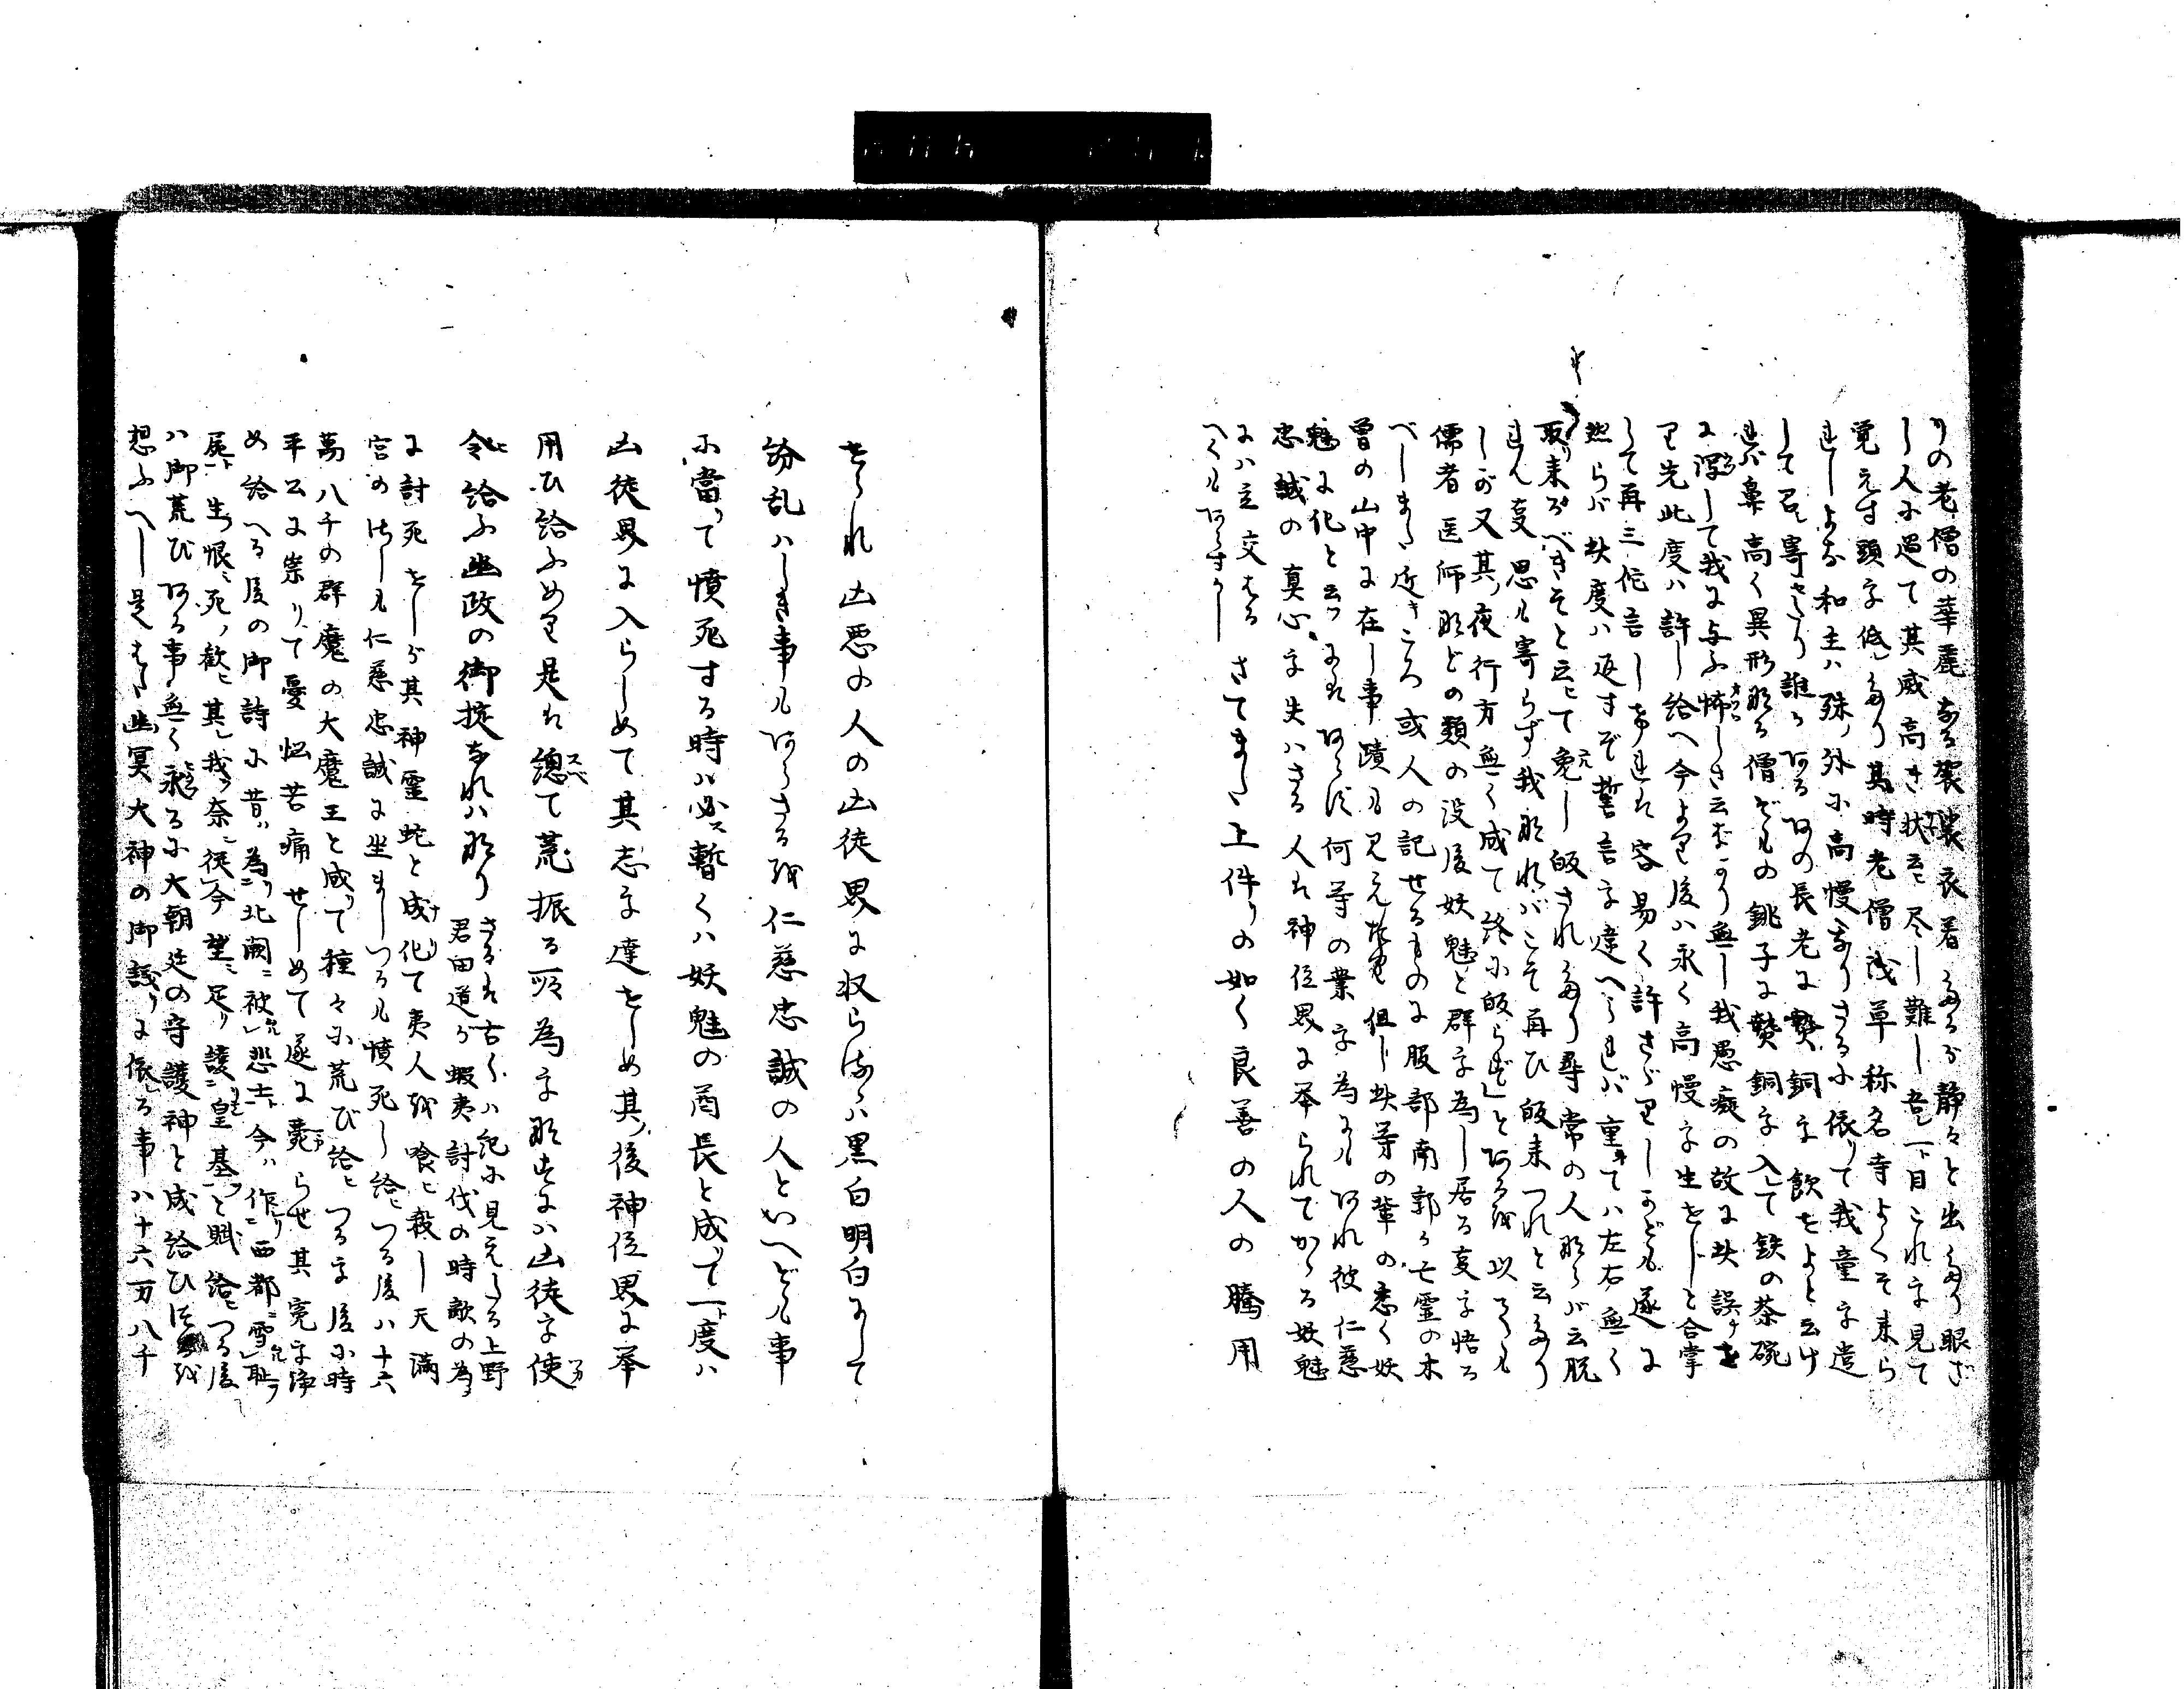 りの老僧の華麗なる袈裟衣着たるが静々と出たり眼ざ
し人に過て其威高き状云ヒ尽し難し吾一ト目これを見て
覚えす頭を低たり其時老僧浅草称名寺よくそ来ら
れしよな和主ハ殊ノ外に高慢なりさるに依りて我童を遣
して召寄さたり誰かある何の長老に熱銅を飲をよと云け
れバ鼻高く異形なる僧どもの銚子に熱銅を入して鉄の茶碗
に浮して我に与ふ怖しさ云はかり無し我愚癡の故に此誤を
り先此度ハ許し給へ今より後ハ永く高慢を生をじと合掌
して再三佗言しけれれ容易く許さゞりしかども遂に
然らバ此度ハ返すぞ誓言を違へられバ重ねてハ左右無く
取り来るべきそと云ヒて免し皈されたり尋常の人ならバ云脱
れん事思も寄らず我なれバこそ再ひ皈来つれと云たり
しが又其ノ夜行方無く成て終に皈らず」とあるを以ても
儒者医師などの類の没後妖魅と群を為し居る事を悟る
べしまた近きころ或人の記せるものに服部南郭か亡霊の木
曽の山中に在し事蹟も見えたり但し此等の輩の悉く妖
魅に化と云フにはあらず何等の業を為にもあれ彼仁慈
忠誠の真心を失ハさる人は神位界に挙られてかゝる妖魅
にハ立交はる さてまた上件りの如く良善の人の騰用
へくもあらすかし
をられ凶悪の人の凶徒界に収らるゝハ黒白明白にして
紛乱ハしき事もあらさるを仁慈忠誠の人といへども事
に當りて憤死する時ハ必ス暫くハ妖魅の酋長と成りて一ト度ハ
凶徒界に入らしめて其志を達をしめ其ノ後神位界に挙
用ひ給ふめり是は總て荒振る所為をなすにハ凶徒を使
令ヒ給ふ幽政の御掟なれハなり さるは古くハ紀に見えたる上野
君田道が蝦夷討伐の時敵の為
に討死をしが其神霊蛇と成化て夷人を喰ヒ殺し天満
宮の にも仁慈忠誠に坐ましつるも憤死し給ヒつる後ハ十六
萬八千の群魔の大魔王と成りて種々に荒び給ヒつるを後に時
平公に祟りて憂悩苦痛せしめて遂に薨らせ其寃を浄
め給へる後の御詩に昔ハ為ニ北闕ニ被ル悲士ト今ハ作ニリ西都ニ雪ル恥ヲ
屍ト生ノ恨ミ死ノ歓ヒ其レ我ヲ奈ニ従今望ミ足リ護ニ皇基ヲと賦給ヒつる後
ハ御荒びある事無く永るに大朝廷の守護神と成給ひ を
想ふへし是はた幽冥大神の御議りに依る事ハ十六万八千